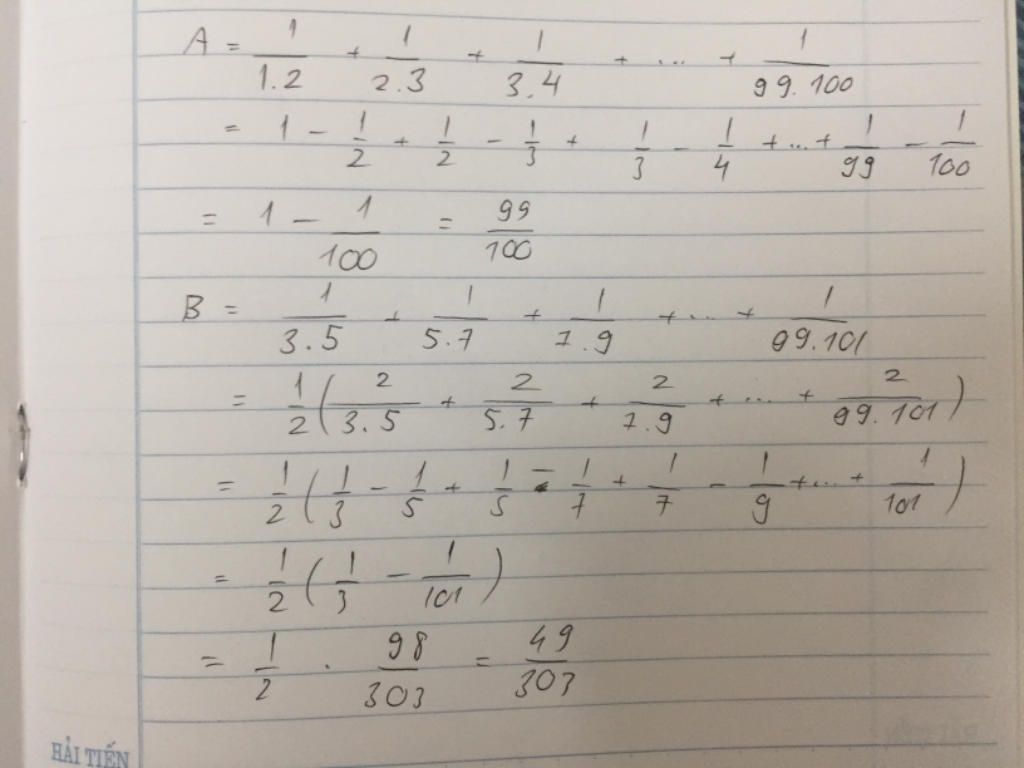 A = 1/1.2 + 1/2.3 + 1/3.4 + ... + 1/99.100
= 1 - 1/2 + 1/2 - 1/3 + 1/3 - 1/4 + ... + 1/99 - 1/100
= 1 - 1/100 = 99/100
B = 1/3.5 + 1/5.7 + 1/7.9 + ... + 1/99.101
= 1/2 (2/3.5 + 2/5.7 + 2/7.9 + ... + 2/99.101)
= 1/2 (1/3 - 1/5 + 1/5 - 1/7 + 1/7 - 1/9 + ... + 1/101)
= 1/2 (1/3 - 1/101)
= 1/2 . 98/303 = 49/303
HẢI TIẾN